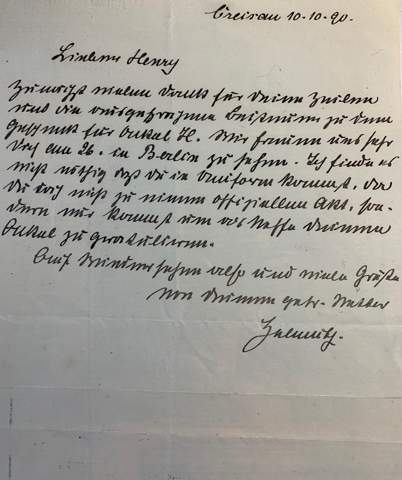 Creisau 10.-10.-90.
Lieber Henry
Zunächst vielen Dank für Deine Zeilen
und die ausgesprochene Beistimmung zu dem
Geschenk für Onkel H. Wir freuen uns sehr
Dich am 26. in Berlin zu sehen. Ich finde es
nicht nöthig daß Du in Uniform kommst, da
Du doch nicht zu einem offiziellen Akt, son-
dern nur kommst um als Neffe Deinem
Onkel zu gratulieren.
Auf Wiedersehen also und viele Grüße
von Deinem getr. Vetter
Helmuth.